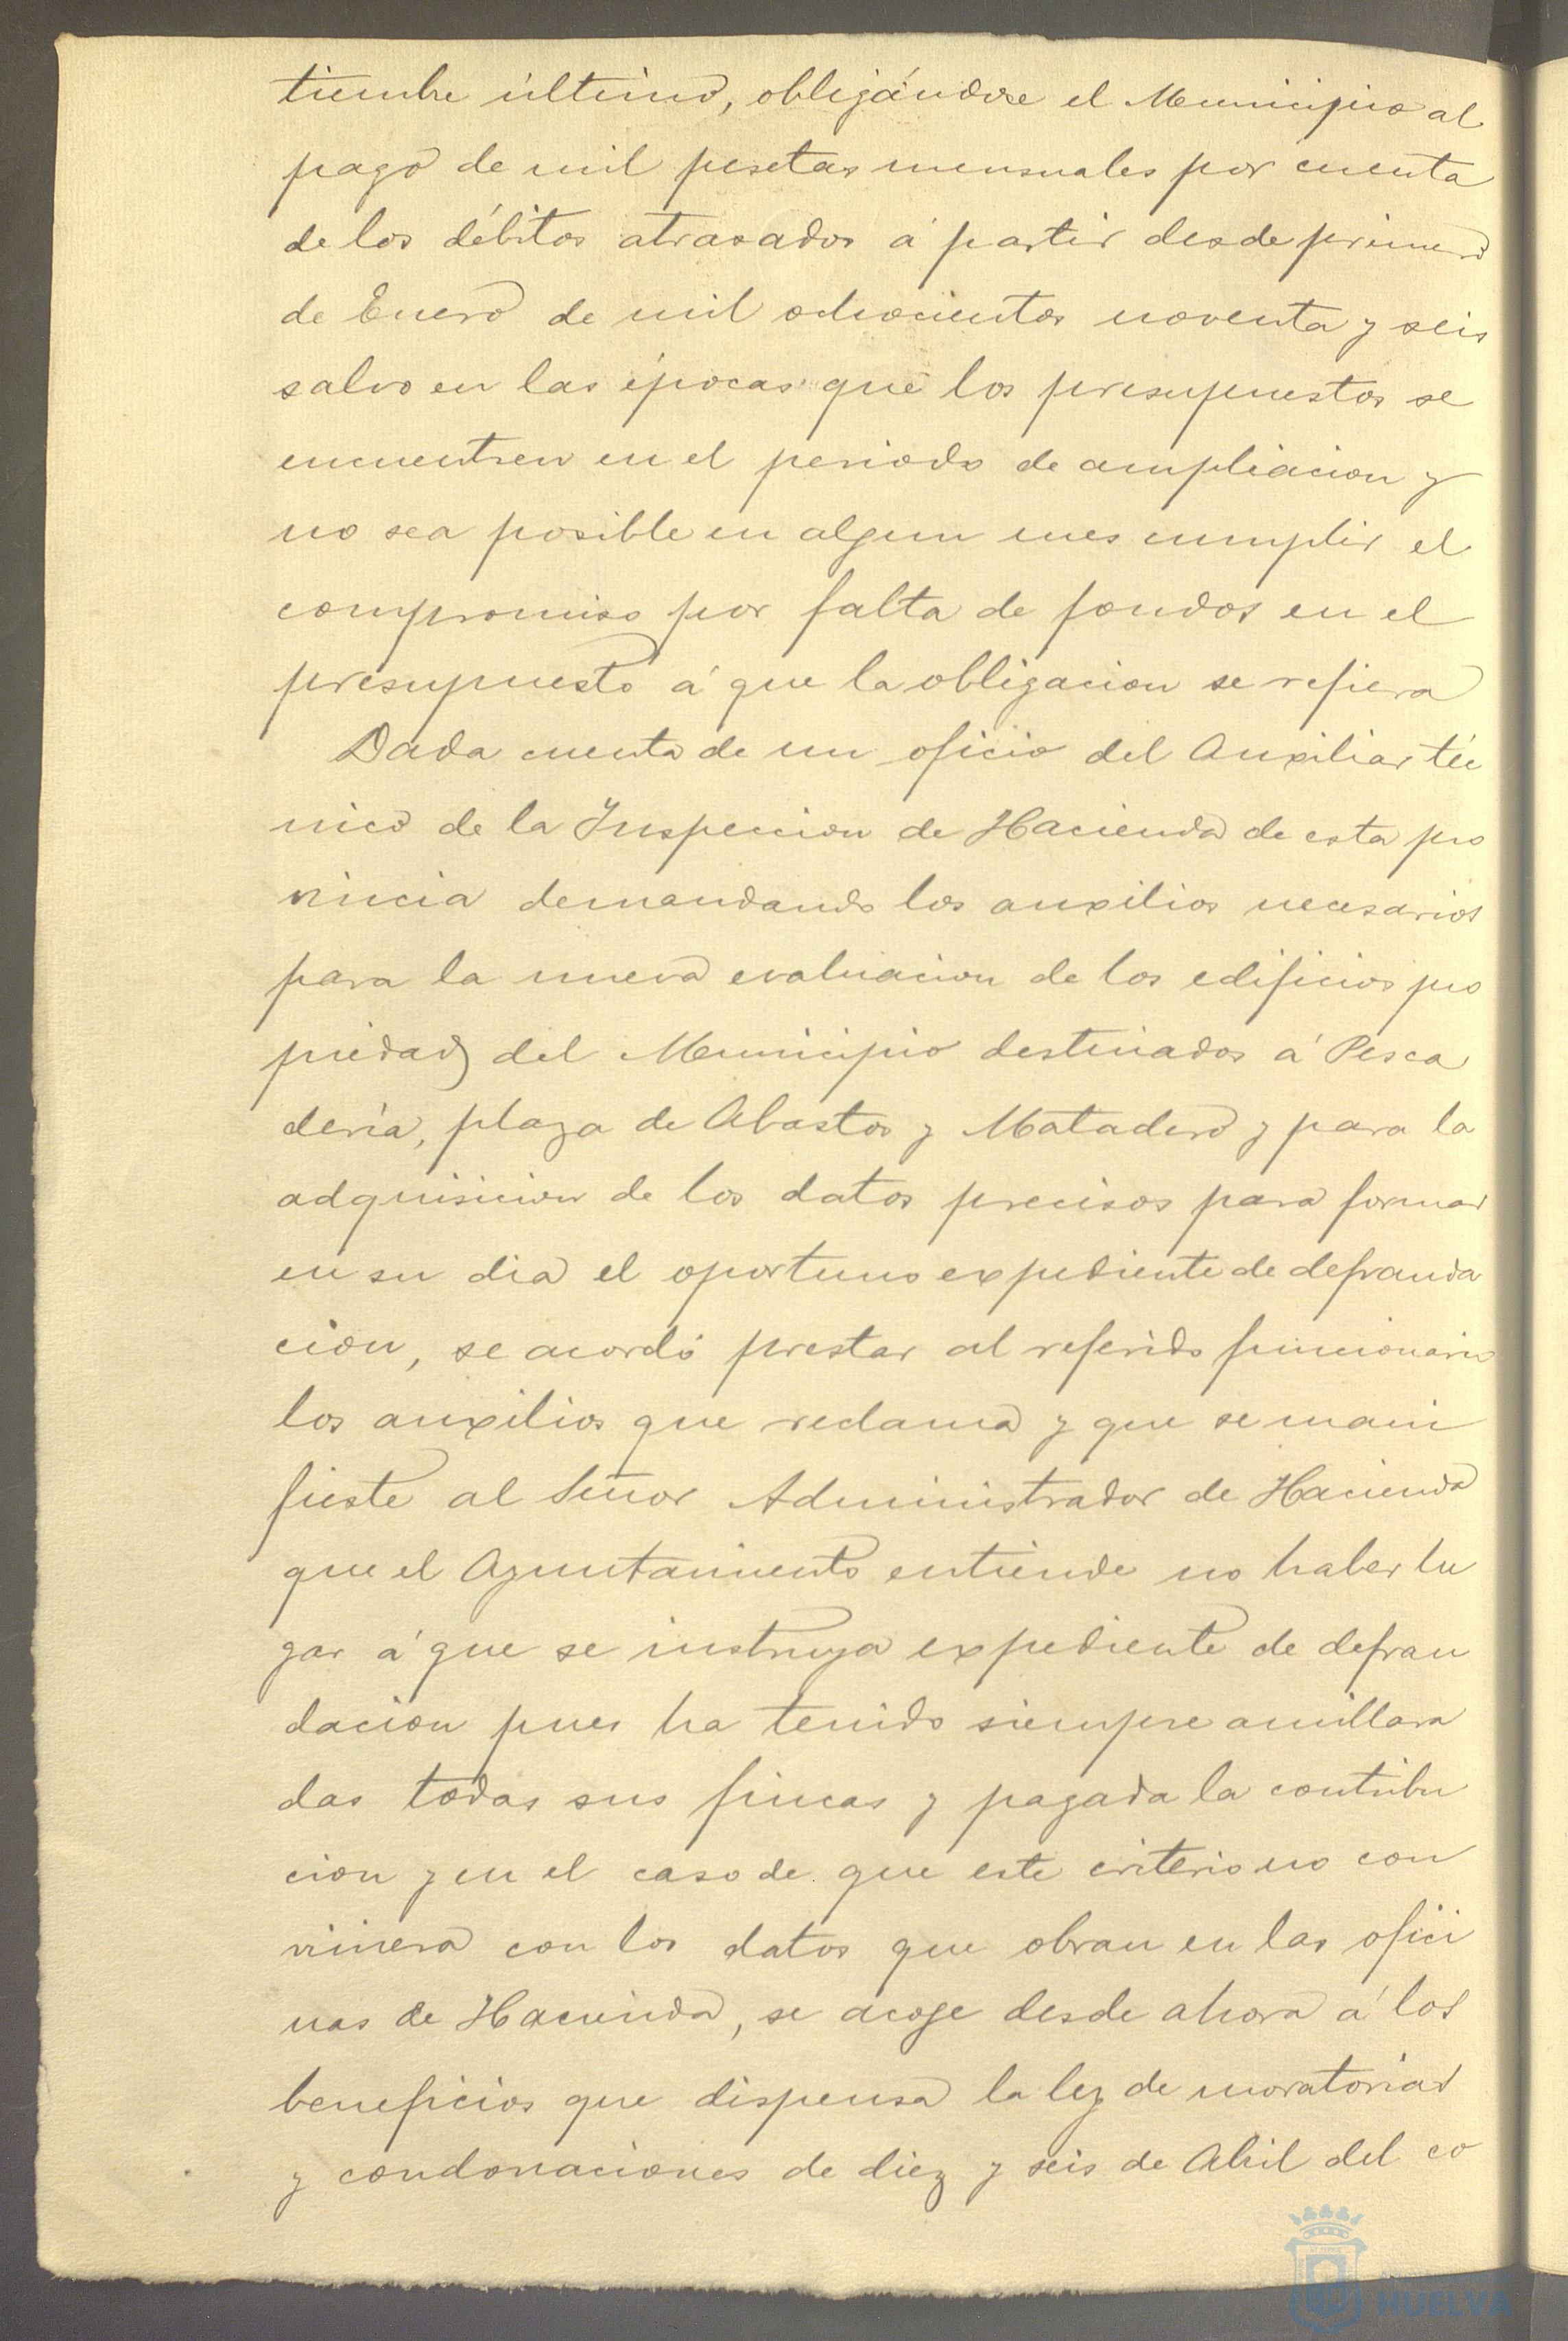 tiembre último, obligándose el Municipio al
pago de mil pesetas mensuales por cuenta
de los débitos atrasados á partir desde primero
de Enero de mil ochocientos noventa y seis
salvo en las épocas que los presupuestos se
encuentren en el periodo de ampliacion y
no sea posible en algun mes cumplir el
compromiso por falta de fondos en el
presupuesto á que la obligacion se refiera
Dada cuenta de un oficio del Auxiliar téc
nico de la Inspeccion de Hacienda de esta pro
vincia demandando los auxilios necesarios
para la nueva evaluacion de los edificios pro
piedad del Municipio destinados á Pesca
dería, plaza de Abastos y Matadero y para la
adquisicion de los datos precisos para formar
en su dia el oportuno expediente de defrauda
cion, se acordó prestar al referido funcionario
los auxilios que reclama y que se mani
fieste al Señor Administrador de Hacienda
que el Ayuntamiento entiende no haber lu
gar á que se instruya expediente de defrau
dacion pues ha tenido siempre amillara
das todas sus fincas y pagada la contribu
cion y en el caso de que este criterio no con
viniera con los datos que obran en las ofici
nas de Hacienda, se acoge desde ahora á los
beneficios que dispensa la ley de moratorias
y condonaciones de diez y seis de Abril del co
HUELVA